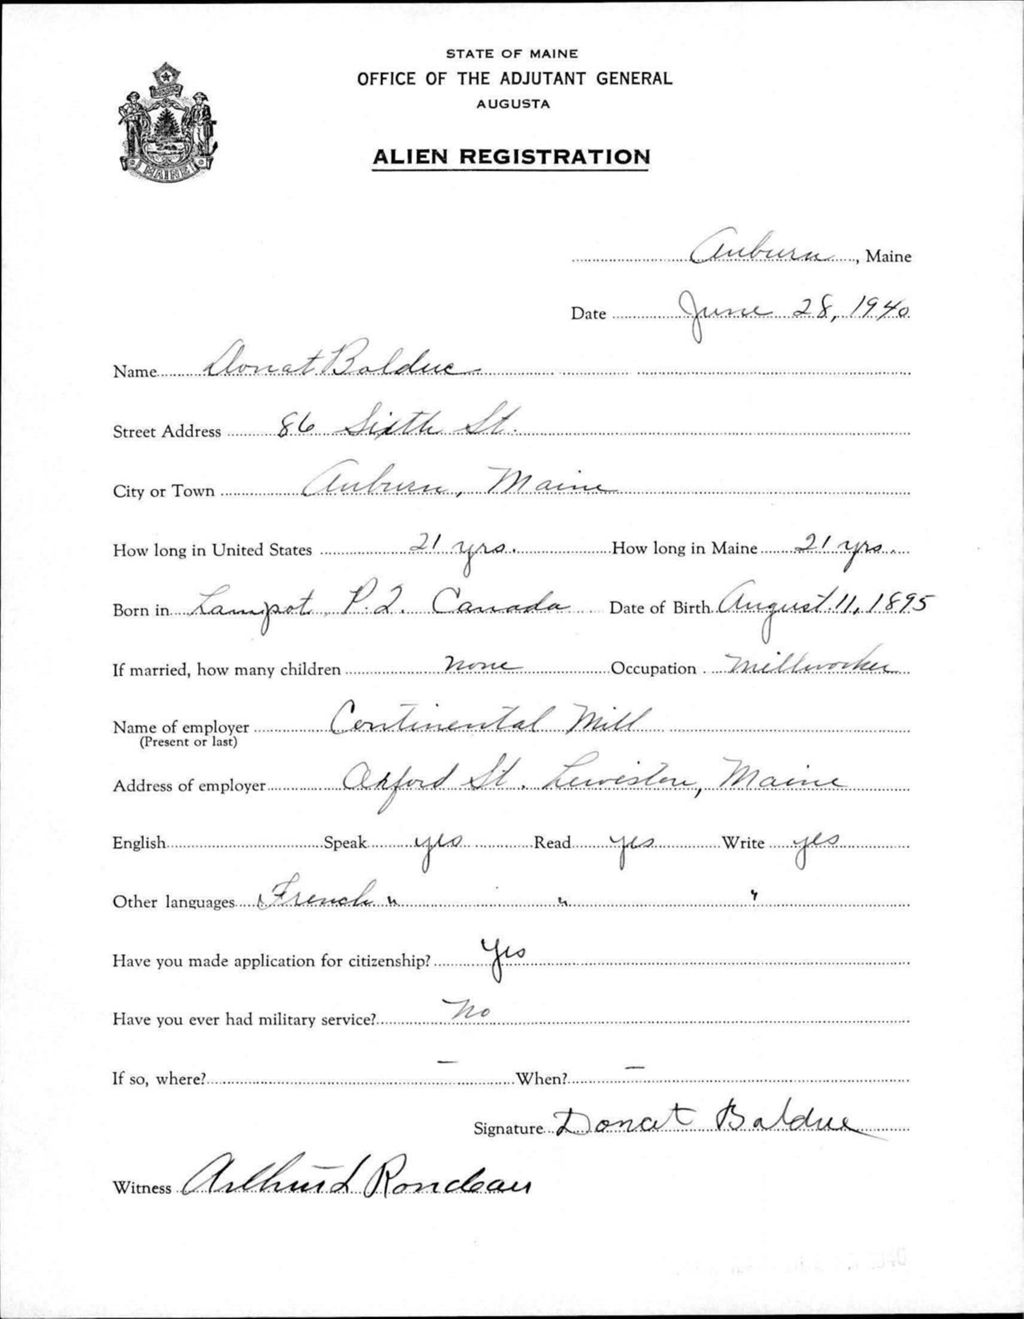 STATE OF MAINE
OFFICE OF THE ADJUTANT GENERAL
AUGUSTA
MAINE
ALIEN REGISTRATION
Auburn, Maine
Date June 28, 1940
Name Donat Bolduc
Street Address 86 Sixth St.
City or Town Auburn, Maine
How long in United States 21 yrs. How long in Maine 21 yrs.
Born in Lampot P.Q. Canada Date of Birth August 11, 1895
If married, how many children none Occupation Millworker
Name of employer Continental Mill
(Present or last)
Address of employer Oxford St. Lewiston, Maine
English Speak yes Read yes Write yes
Other languages French " " "
Have you made application for citizenship? Yes
Have you ever had military service? No
If so, where? — When? —
Signature Donat Bolduc
Witness Rondeau